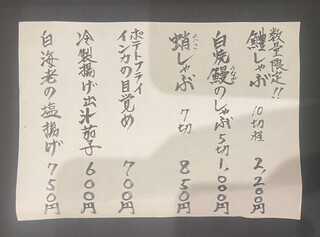 数量限定!!
鱧しゃぶ 10切程 2,200円
白焼鰻のしゃぶ 5切 1,000円
うなぎ
蛸しゃぶ 7切 850円
たこ
ポテトフライ
インカの目覚め 700円
冷製揚げ出汁茄子 600円
白海老の塩揚げ 750円